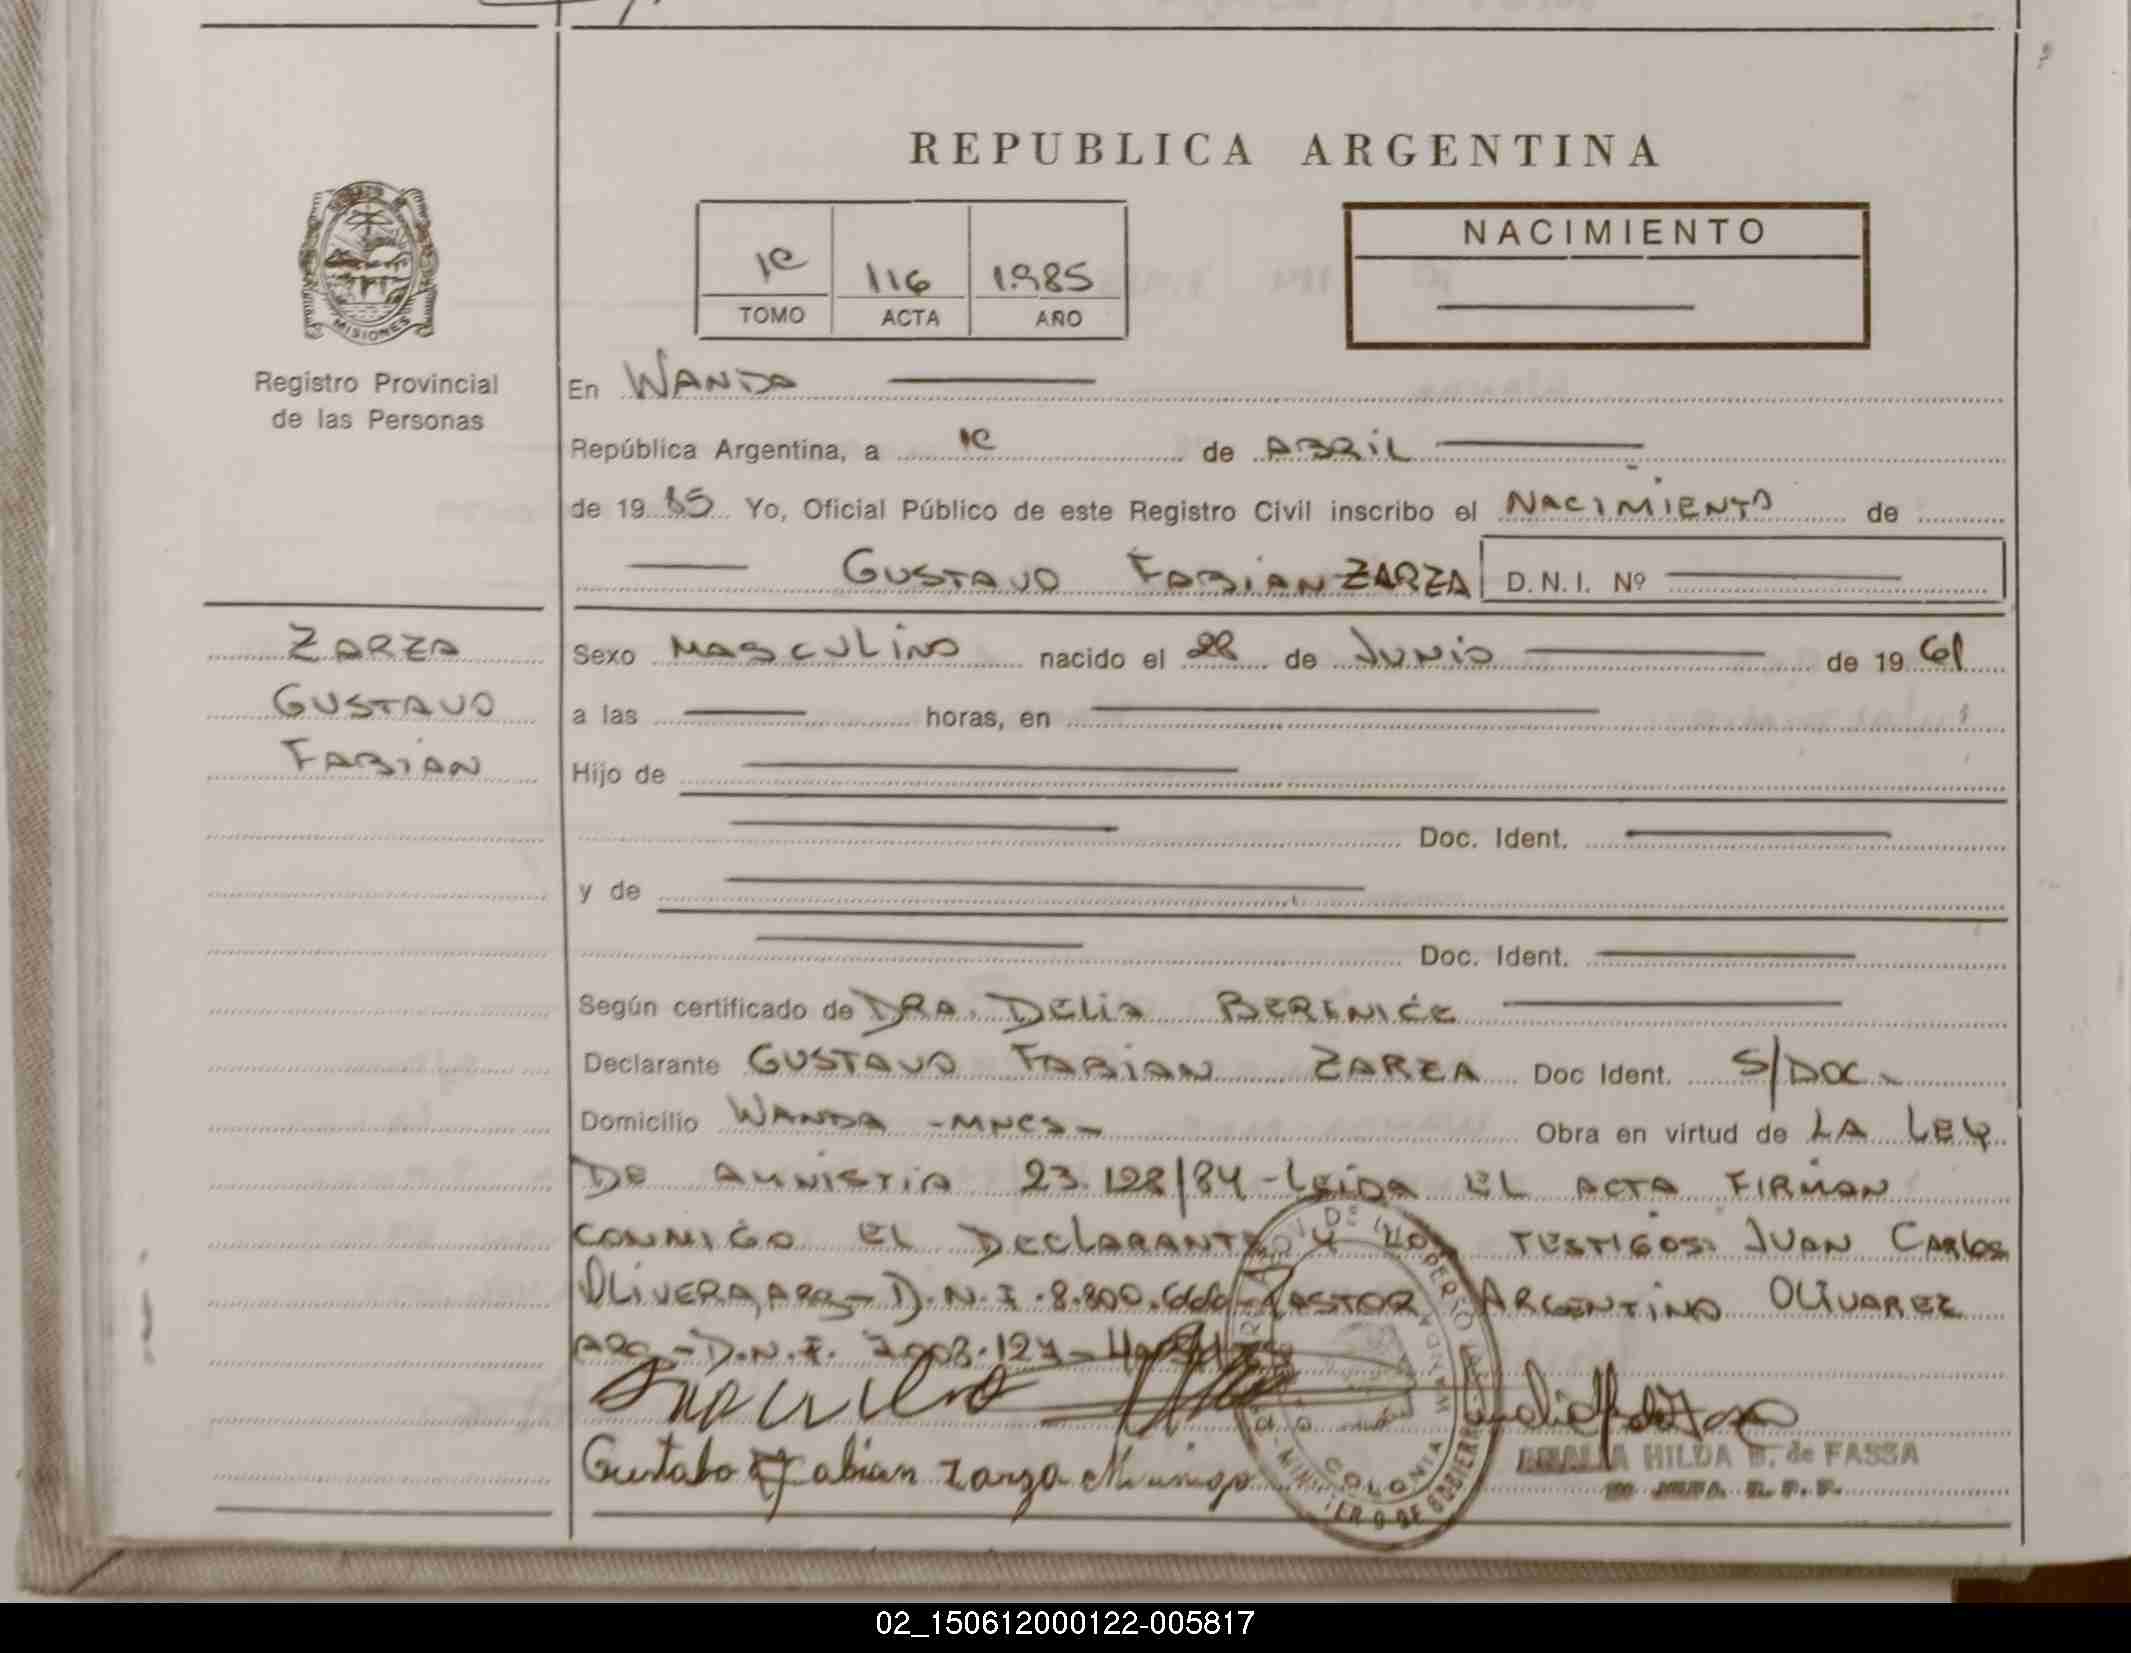 REPUBLICA ARGENTINA
MISIONES
Registro Provincial
de las Personas
1º 116 1.985
TOMO ACTA AÑO
NACIMIENTO
En WANDA
República Argentina, a 1º de ABRIL
de 19 85 Yo, Oficial Público de este Registro Civil inscribo el NACIMIENTO de
GUSTAVO FABIAN ZARZA D.N.I. Nº
ZARZA
GUSTAVO
FABIAN
Sexo MASCULINO nacido el 28 de JUNIO de 19 61
a las horas, en
Hijo de
Doc. Ident.
y de
Doc. Ident.
Según certificado de DRA. DELIA BERENICE
Declarante GUSTAVO FABIAN ZARZA Doc Ident. S/DOC.
Domicilio WANDA -MNES- Obra en virtud de LA LEY
DE AMNISTIA 23.128/84 - LEIDA EL ACTA FIRMAN
CONMIGO EL DECLARANTE Y LOS TESTIGOS: JUAN CARLOS
OLIVERA, ARG- D.N.I. 8.800.666- CASTOR ARGENTINO OLIVAREZ
ARG- D.N.I.
Gustabo Fabian Zarza
COLONIA WANDA
AMALIA HILDA B. de FASSA
02_150612000122-005817